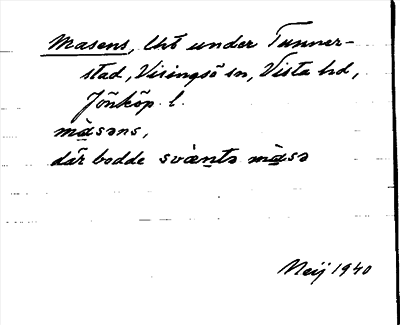 Masens, Uht under Tunner-
stad, Visingsö sn, Vista hd,
Jönköp. l.
màsəns,
där bodde svæntə màsə
Meij 1940